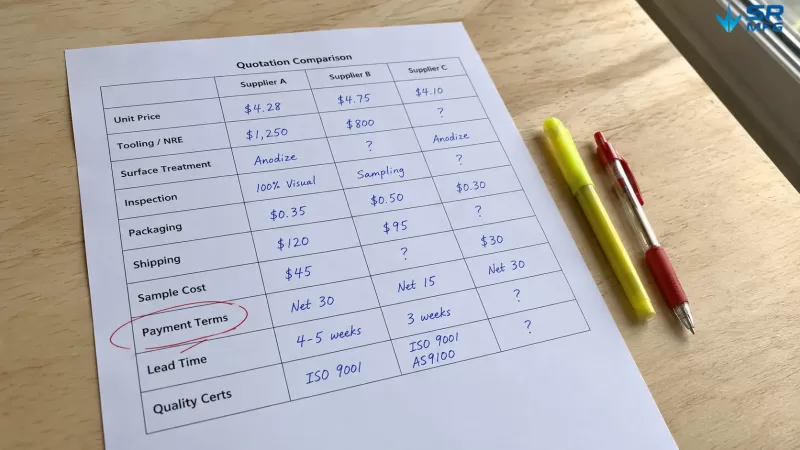 SR
MFG
Quotation Comparison
Supplier A Supplier B Supplier C
Unit Price $4.28 $4.75 $4.10
Tooling / NRE $1,250 $800 ?
Surface Treatment Anodize ? Anodize
Inspection 100% Visual Sampling ?
Packaging $0.35 $0.50 $0.30
Shipping $120 $95 ?
Sample Cost $45 ? $30
Payment Terms Net 30 Net 15 Net 30
Lead Time 4-5 weeks 3 weeks ?
Quality Certs ISO 9001 ISO 9001 ?
AS9100